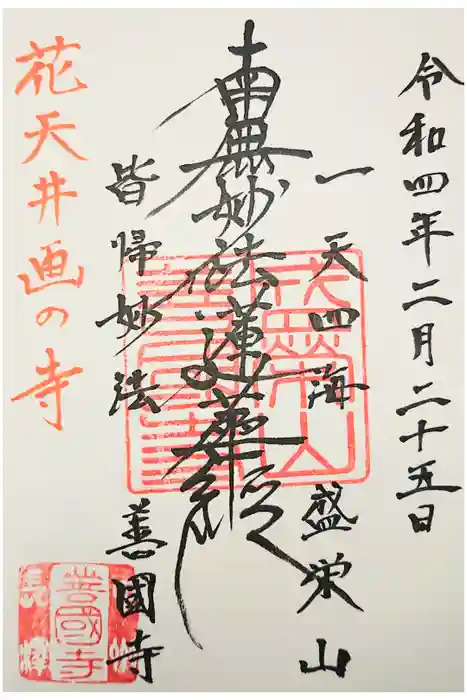 令和四年二月二十五日
一天四海 盛栄山
南無妙法蓮華経
皆帰妙法 善國寺
花天井画の寺
善國寺